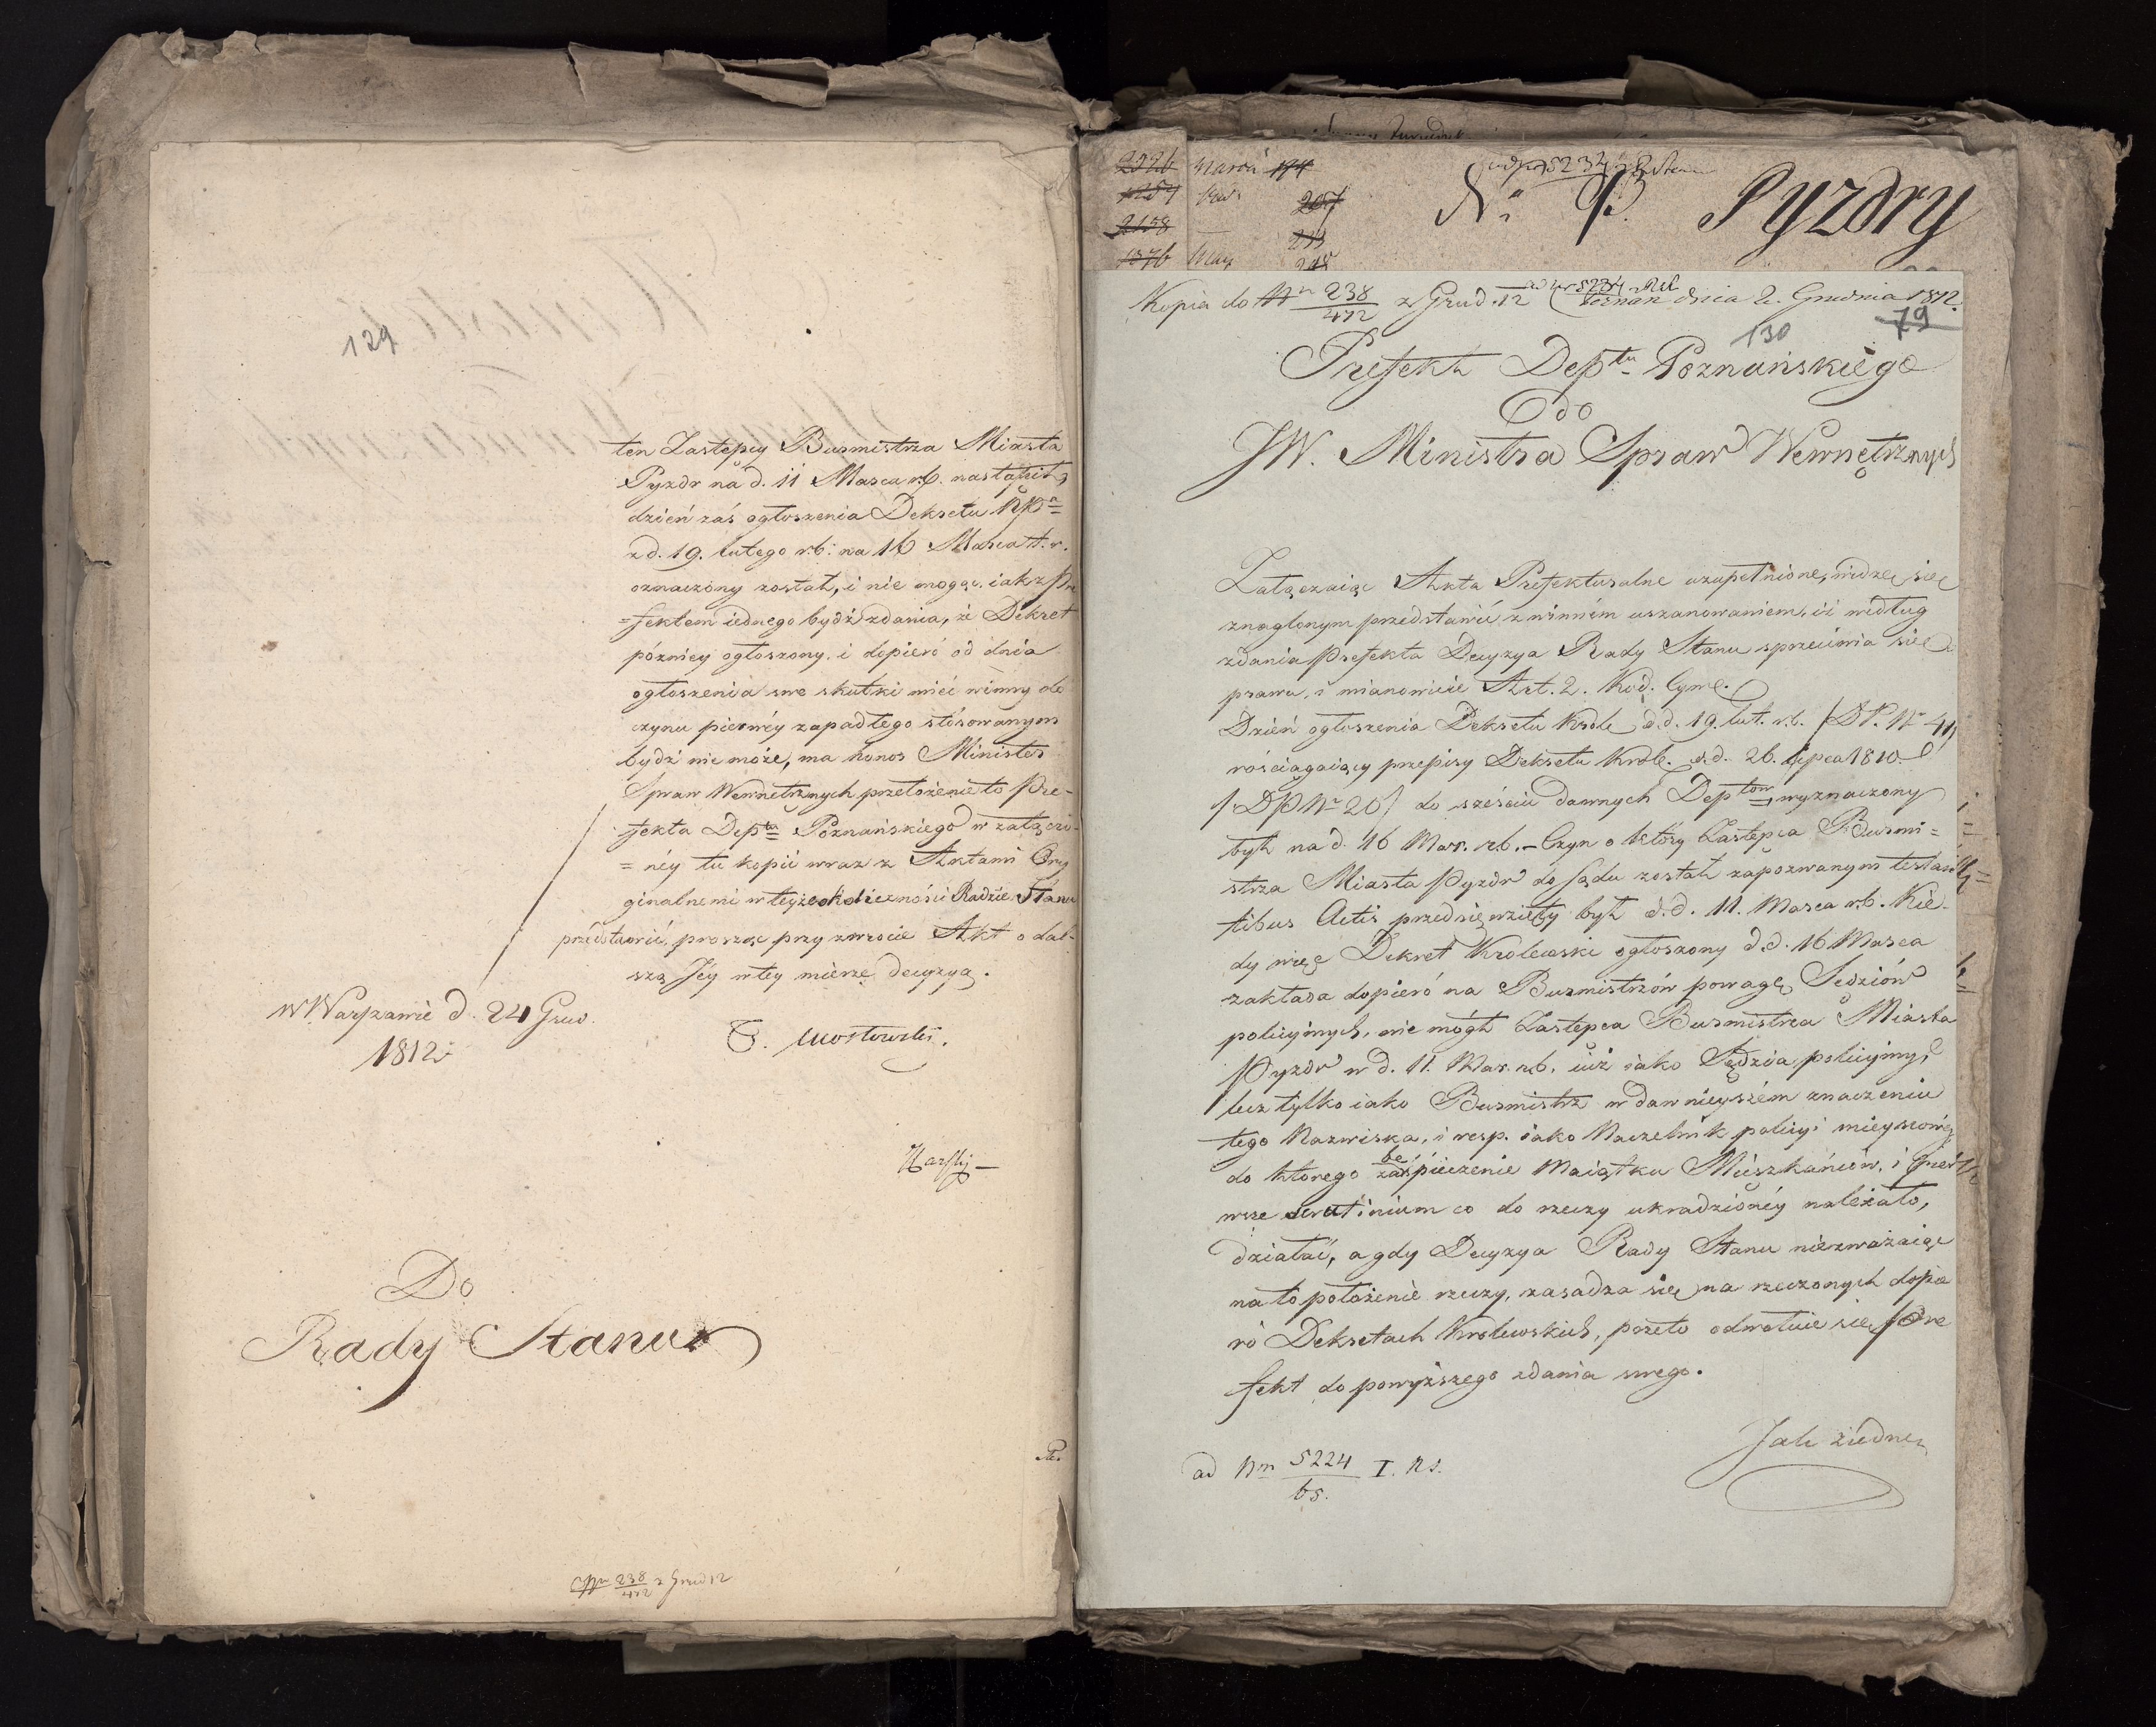 129
ten Zastępcy Burmistrza Miasta
Pyzdr na d. 11 Marca r.b. nastąpił,
dzień zaś ogłoszenia Dekretu
z d. 19. lutego r.b. na 16 Marca t.r.
oznaczony został, i nie mogąc iak z Pre
=fektem iednego bydź zdania, że Dekret
późniey ogłoszony, i dopiero od dnia
ogłoszenia swe skutki mieć winny do
czynu pierwéy zapadłego stósowanym
bydź nie może, ma honor Minister
Spraw Wewnetrznych przełożenie to Pre-
fekta Dep<sup>tu</sup> Poznańskiego w załączo-
=néy tu kopii wraz z Aktami Ory
ginalnemi w teyże okoliczności Radzie Stanu
przedstawić, prosząc przy zwrocie Akt o dal-
szą Jéy w tey mierze decyzyą.
w Warszawie d. 24 Grud.
1812
T. Mostowski.
Do
Rady Stanu
238/412 z Grud 12
2926 Marca 194
1254 207
2158 211
1376 May
N: 9. Pyzdry
Kopia do N<sup>ru</sup> 238/412 z Grud. 12
Poznań dnia 2. Grudnia 1812.
130 79
Prefekt Dep<sup>tu</sup> Poznańskiego
do
JW. Ministra Spraw Wewnętrznych
Załączaiąc Akta Prefekturalne uzupełnione, widzę się
znaglonym przedstawić z winném uszanowaniem, iż według
zdania Prefekta Decyzya Rady Stanu sprzeciwia się
prawu, i mianowicie Art. 2. Kod. Cyw.
Dzień ogłoszenia Dekretu Króle d.d. 19. lut. r.b. /D.P. N<sup>r</sup> 41/
rościągaiący przepisy Dekretu Króle. d.d. 26. lipca 1810.
/:D P N<sup>r</sup> 20/ do sześciu dawnych Dep<sup>tow</sup> wyznaczony
był na d. 16 Mar. r.b. – Czyn o który Zastępca Burmi=
strza Miasta Pyzdr do sądu został zapozwanym testan
tibus Actis przedsięwzięty był d.d. 11. Marca r.b. Kie-
dy więc Dekret Królewski ogłoszony d.d. 16 Marca
zakłada dopiero na Burmistrzów powagę Sędziów
policyinych, nie mógł Zastępca Burmistrza Miasta
Pyzdr w d. 11. Mar. r.b. iuż iako Sędzia policyiny,
lecz tylko iako Burmistrz w dawnieyszém znaczeniu
tego Nazwiska, i resp. iako Naczelnik policyi mieyscowéy
do którego zabespieczenie Maiątku Mieszkańców, i pier
wsze scrutinium co do rzeczy ukradzionéy należało,
działać, a gdy Decyzya Rady Stanu niezważaiąc
na to położenie rzeczy, zasadza się na rzeczonych dopie
ro Dekretach Królewskich, przeto odwołuie się Pre
fekt do powyższego zdania swego.
ad N<sup>m</sup> 5224/bs. I. Rs.